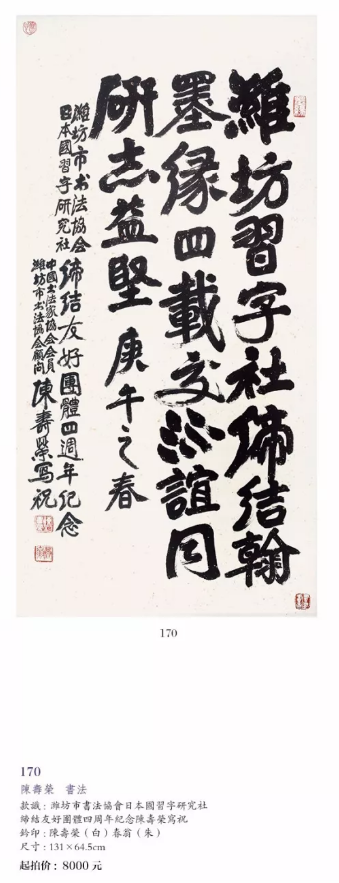 濰坊習字社締結翰
墨緣四載交誼同
研志益堅 庚午之春
濰坊市书法協會
日本國習字研究社
締結友好團體四週年纪念
中國书法家協会会員
濰坊市书法協会顧问
陳壽榮寫祝
170
170
陳壽榮 書法
款識：濰坊市書法協會日本國習字研究社
締結友好團體四周年纪念陳壽榮寫祝
鈐印：陳壽榮（白）春翁（朱）
尺寸：131×64.5cm
起拍价：8000 元